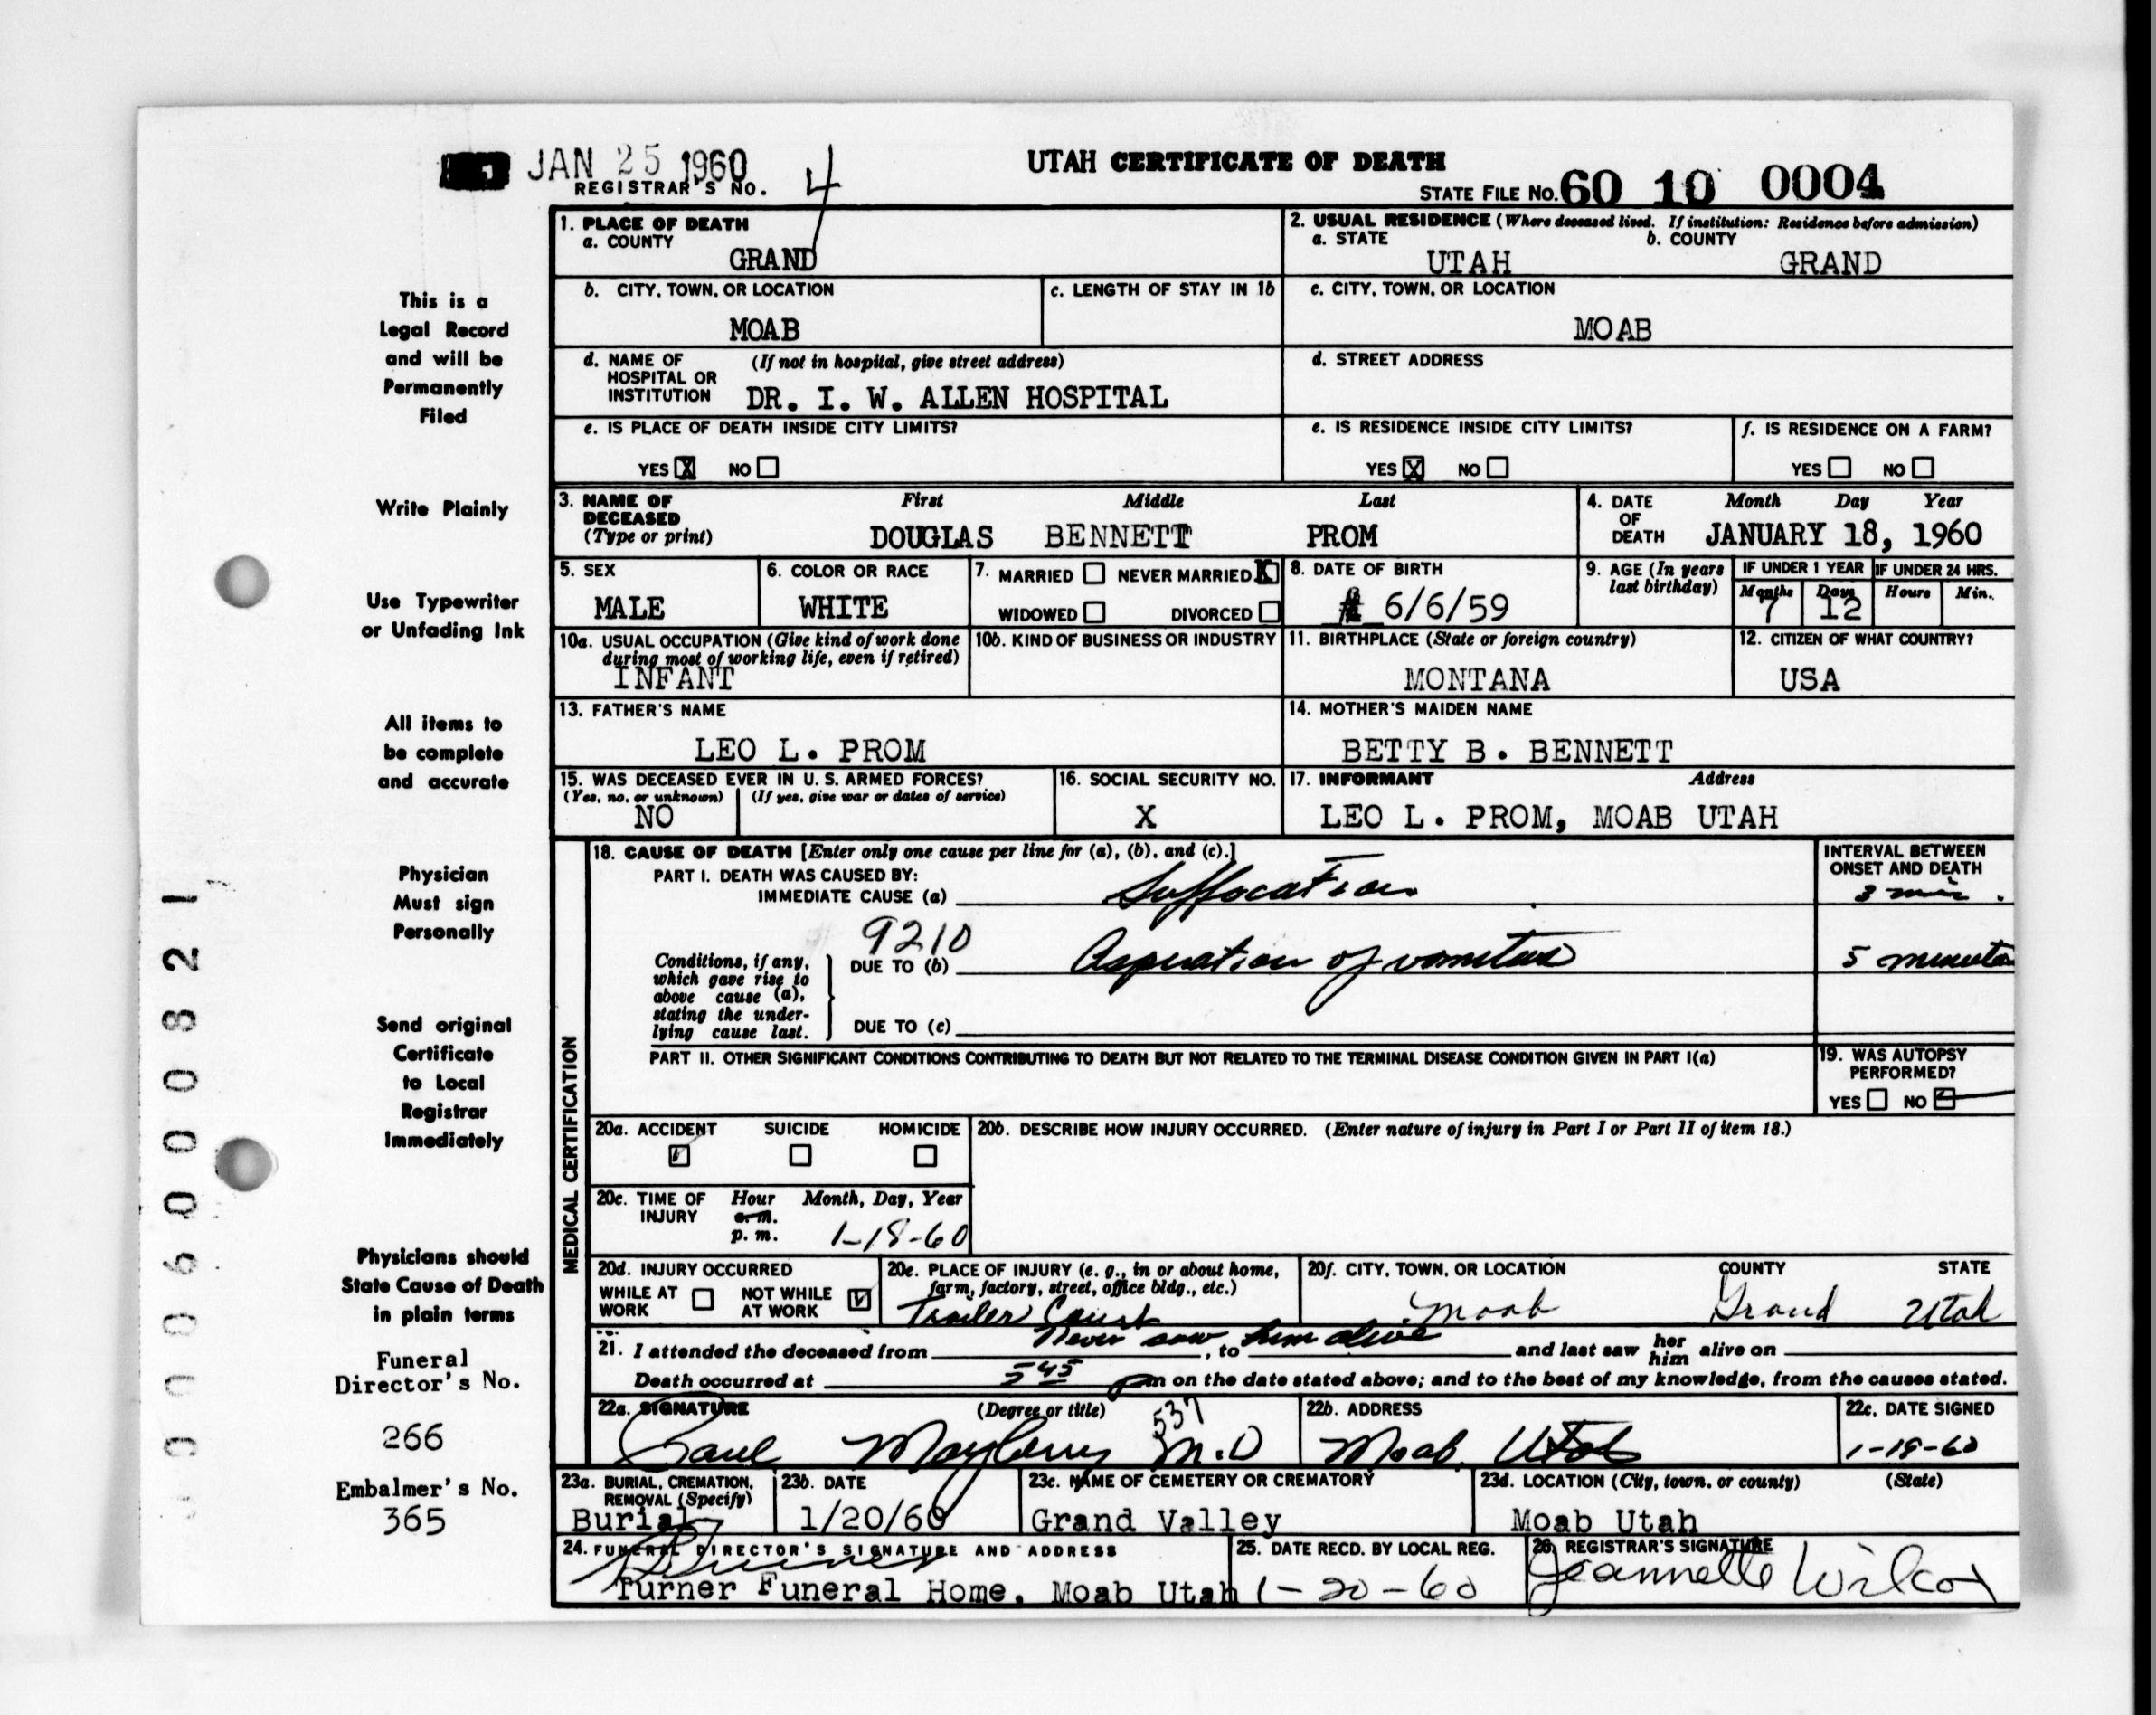 JAN 25 1960
REGISTRAR'S NO. 4
UTAH CERTIFICATE OF DEATH
STATE FILE NO. 60 10 0004
This is a
Legal Record
and will be
Permanently
Filed
Write Plainly
Use Typewriter
or Unfading Ink
All items to
be complete
and accurate
Physician
Must sign
Personally
Send original
Certificate
to Local
Registrar
Immediately
Physicians should
State Cause of Death
in plain terms
Funeral
Director's No.
266
Embalmer's No.
365
000600821
1. PLACE OF DEATH
a. COUNTY
GRAND
2. USUAL RESIDENCE (Where deceased lived. If institution: Residence before admission)
a. STATE b. COUNTY
UTAH GRAND
b. CITY, TOWN, OR LOCATION
MOAB
c. LENGTH OF STAY IN 1b
c. CITY, TOWN, OR LOCATION
MOAB
d. NAME OF (If not in hospital, give street address)
HOSPITAL OR
INSTITUTION DR. I. W. ALLEN HOSPITAL
d. STREET ADDRESS
e. IS PLACE OF DEATH INSIDE CITY LIMITS?
YES X NO
e. IS RESIDENCE INSIDE CITY LIMITS?
YES X NO
f. IS RESIDENCE ON A FARM?
YES NO
3. NAME OF First Middle Last
DECEASED
(Type or print) DOUGLAS BENNETT PROM
4. DATE Month Day Year
OF
DEATH JANUARY 18, 1960
5. SEX
MALE
6. COLOR OR RACE
WHITE
7. MARRIED NEVER MARRIED X
WIDOWED DIVORCED
8. DATE OF BIRTH
6/6/59
9. AGE (In years
last birthday)
IF UNDER 1 YEAR IF UNDER 24 HRS.
Months Days Hours Min.
7 12
10a. USUAL OCCUPATION (Give kind of work done
during most of working life, even if retired)
INFANT
10b. KIND OF BUSINESS OR INDUSTRY
11. BIRTHPLACE (State or foreign country)
MONTANA
12. CITIZEN OF WHAT COUNTRY?
USA
13. FATHER'S NAME
LEO L. PROM
14. MOTHER'S MAIDEN NAME
BETTY B. BENNETT
15. WAS DECEASED EVER IN U. S. ARMED FORCES?
(Yes, no, or unknown) (If yes, give war or dates of service)
NO
16. SOCIAL SECURITY NO.
X
17. INFORMANT Address
LEO L. PROM, MOAB UTAH
MEDICAL CERTIFICATION
18. CAUSE OF DEATH [Enter only one cause per line for (a), (b), and (c).]
PART I. DEATH WAS CAUSED BY:
IMMEDIATE CAUSE (a) Suffocation
INTERVAL BETWEEN
ONSET AND DEATH
3 min.
9210
Conditions, if any,
which gave rise to
above cause (a),
stating the under-
lying cause last.
DUE TO (b) Aspiration of vomitus
5 minutes
DUE TO (c)
PART II. OTHER SIGNIFICANT CONDITIONS CONTRIBUTING TO DEATH BUT NOT RELATED TO THE TERMINAL DISEASE CONDITION GIVEN IN PART I(a)
19. WAS AUTOPSY
PERFORMED?
YES NO
20a. ACCIDENT SUICIDE HOMICIDE
20b. DESCRIBE HOW INJURY OCCURRED. (Enter nature of injury in Part I or Part II of item 18.)
20c. TIME OF Hour Month, Day, Year
INJURY a. m.
p. m. 1-18-60
20d. INJURY OCCURRED
WHILE AT NOT WHILE
WORK AT WORK
20e. PLACE OF INJURY (e. g., in or about home,
farm, factory, street, office bldg., etc.)
Trailer Court
20f. CITY, TOWN, OR LOCATION COUNTY STATE
Moab Grand Utah
21. I attended the deceased from Never saw, to him alive and last saw her him alive on
Death occurred at 5 45 p m on the date stated above; and to the best of my knowledge, from the causes stated.
22a. SIGNATURE (Degree or title) 537
Paul Mayberry M.D
22b. ADDRESS
Moab Utah
22c. DATE SIGNED
1-18-60
23a. BURIAL, CREMATION,
REMOVAL (Specify)
Burial
23b. DATE
1/20/60
23c. NAME OF CEMETERY OR CREMATORY
Grand Valley
23d. LOCATION (City, town, or county) (State)
Moab Utah
24. FUNERAL DIRECTOR'S SIGNATURE AND ADDRESS
Turner Funeral Home, Moab Utah
25. DATE RECD. BY LOCAL REG.
1-20-60
26. REGISTRAR'S SIGNATURE
Jeannette Wilcox